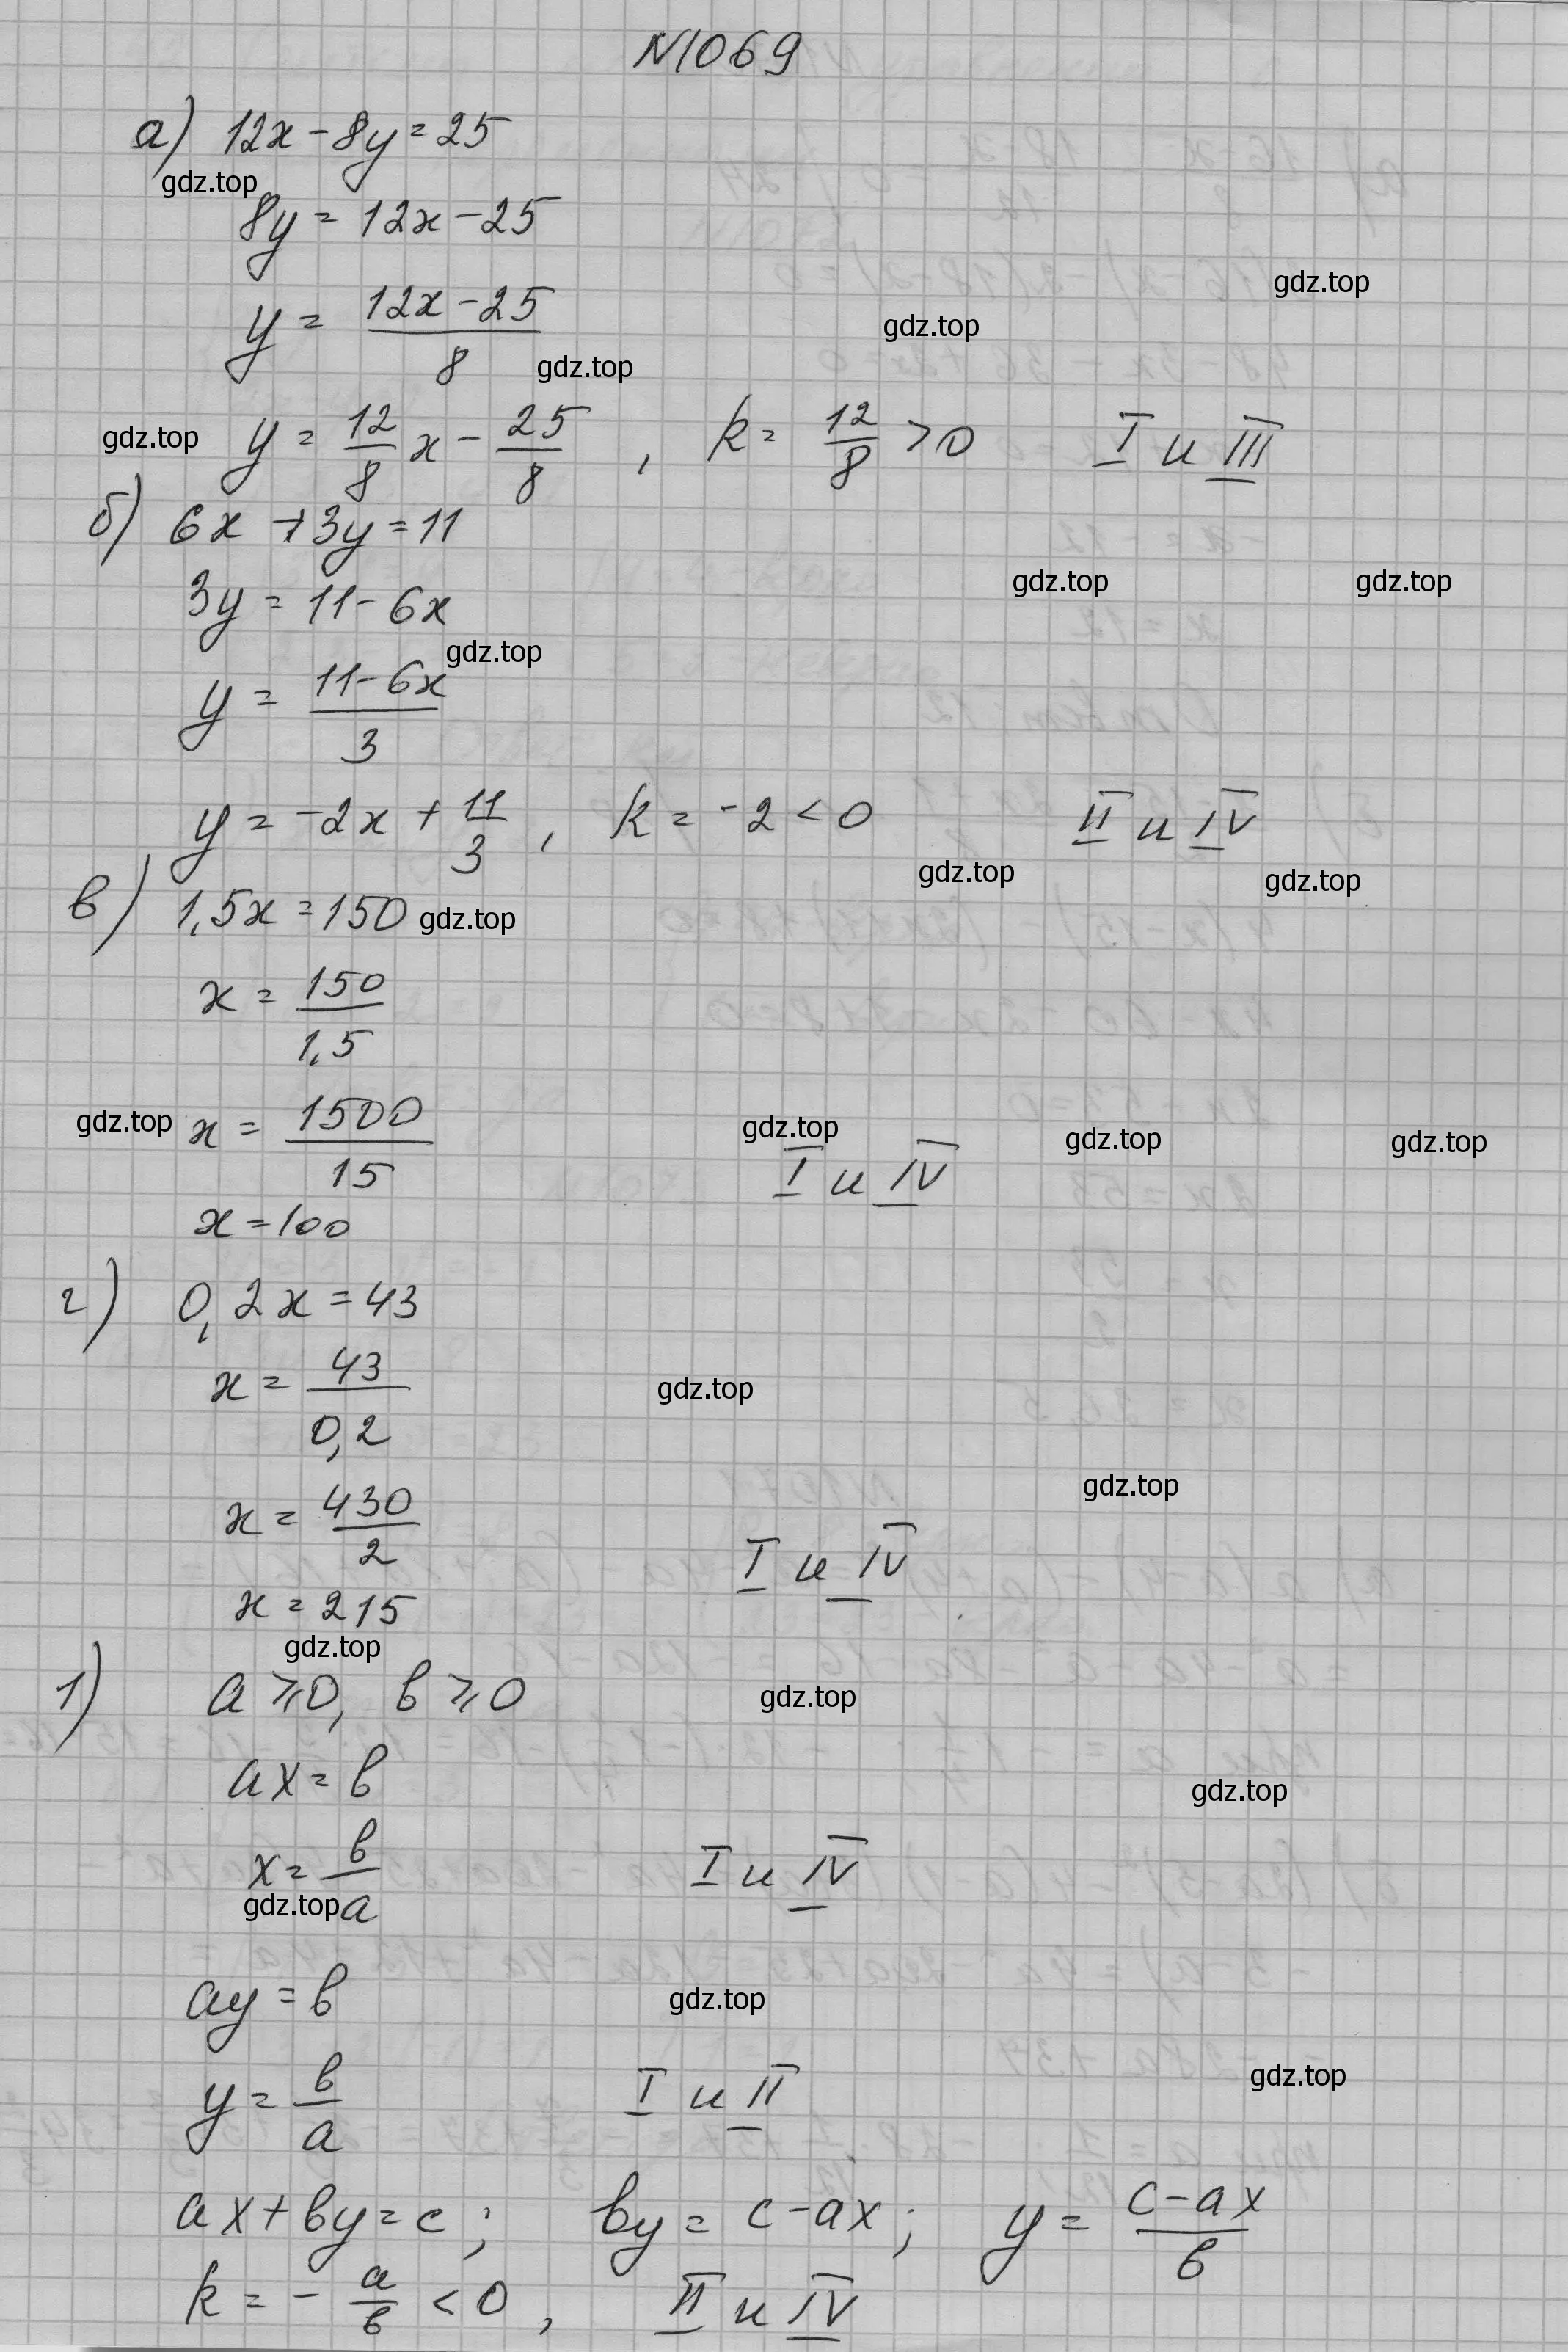 N1069
а) 12x - 8y = 25
gdz.top
8y = 12x - 25
gdz.top
y = (12x - 25)/8
gdz.top
gdz.top
gdz.top y = 12/8 x - 25/8 , k = 12/8 > 0 I и III
б) 6x + 3y = 11
3y = 11 - 6x
gdz.top gdz.top
gdz.top
y = (11 - 6x)/3
y = -2x + 11/3 , k = -2 < 0 II и IV
gdz.top gdz.top
в) 1,5x = 150 gdz.top
x = 150/1,5
gdz.top x = 1500/15
gdz.top gdz.top gdz.top
I и IV
x = 100
г) 0,2x = 43
x = 43/0,2
gdz.top
gdz.top
x = 430/2 I и IV
x = 215
gdz.top
1) a ⩾ 0, b ⩾ 0
gdz.top
ax = b
gdz.top
x = b/a I и IV
gdz.top
ay = b
gdz.top
y = b/a I и II
gdz.top
ax + by = c ; by = c - ax ; y = (c - ax)/b
k = - a/b < 0 , II и IV